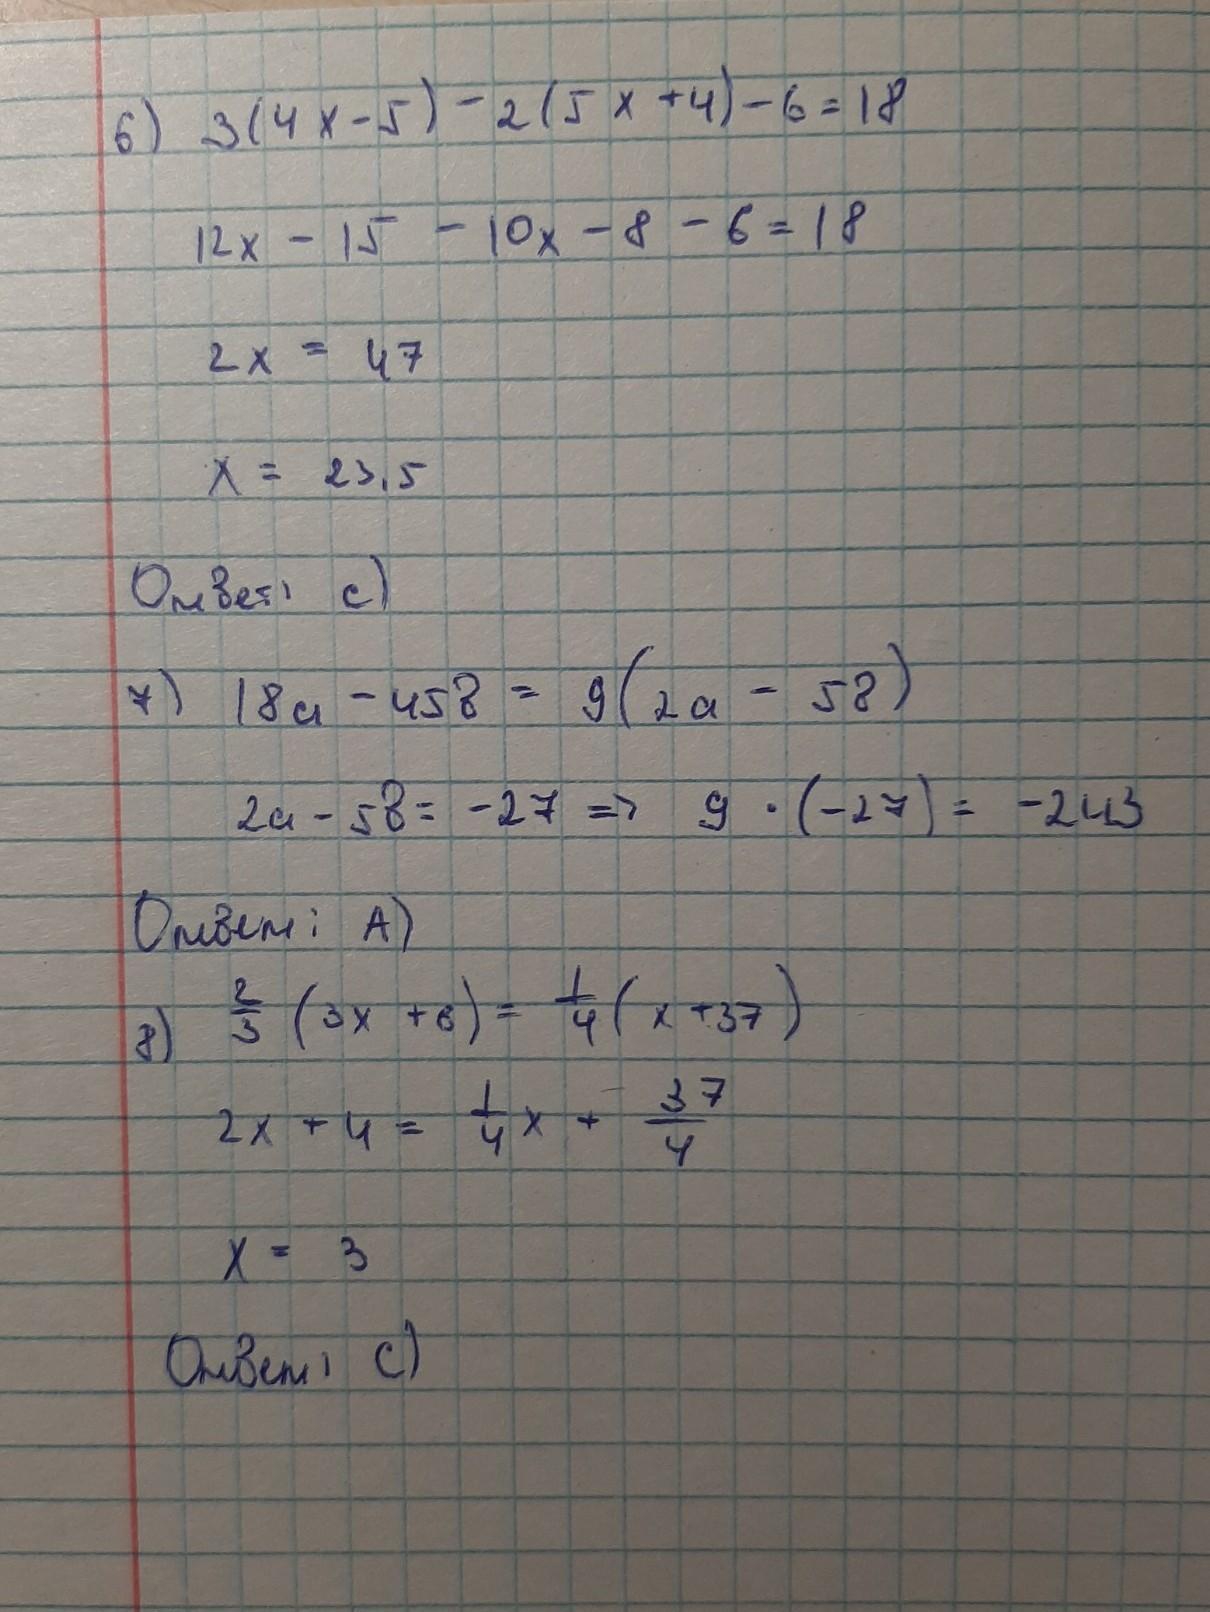 6) 3(4x-5) - 2(5x+4) - 6 = 18
12x - 15 - 10x - 8 - 6 = 18
2x = 47
x = 23,5
Ответ: c)
7) 18a - 45в = 9(2a - 5в)
2a - 5в = -27 => 9 · (-27) = -243
Ответ: A)
8) 2/3 (3x + 6) = 1/4 (x + 37)
2x + 4 = 1/4 x + 37/4
x = 3
Ответ: C)